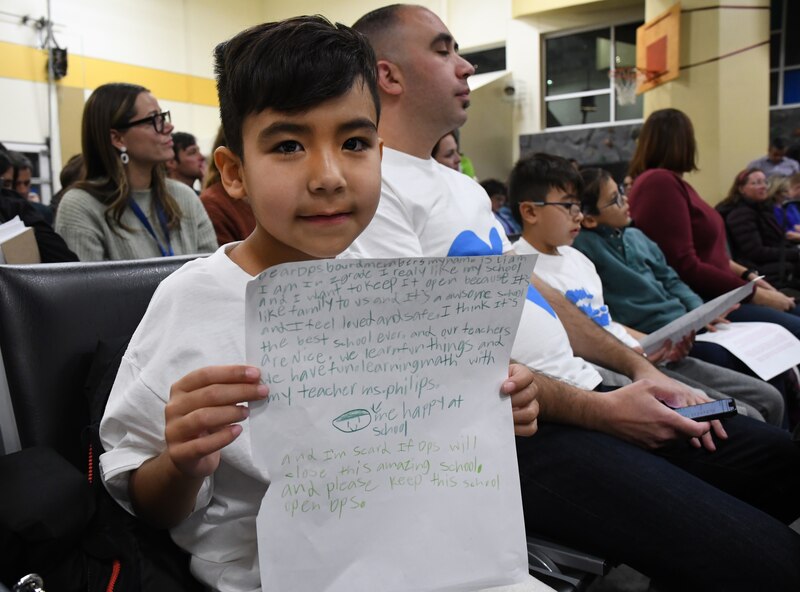 Dear Dps boardmembers my name is Liam
I am In 2 grade I realy like my school
and I want to keep it open because It's
like family to us and it's a awsome school
and I feel loved and safe. I think It's
the best school ever. and our teachers
are Nice. we learn fun things and
we have fun learning math with
my teacher ms. philips.
me happy at
school
and I'm scard If Dps will
close this amazing school.
and please keep this school
open DPS.